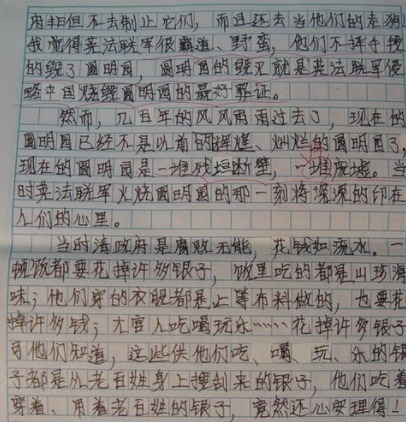 府非但不去制止它们，而且还去当他们的走狗！
我觉得英法联军很霸道、野蛮，他们不择手段
的毁了圆明园，圆明园的毁灭就是英法联军侵
略中国烧毁圆明园的最好罪证。
然而，几百年的风风雨雨过去了，现在的
圆明园已经不是以前的辉煌、灿烂的圆明园了，
现在的圆明园是一堆残垣断壁，一堆废墟。当
时英法联军火烧圆明园的那一刻将深深的印在
人们的心里。
当时清政府是腐败无能，花钱如流水。一
顿饭都要花掉许多银子，饭里吃的都是山珍海
味；他们穿的衣服都是上等布料做的，也要花
掉许多钱；大官人吃喝玩乐……花掉许多银子
可他们知道，这些供他们吃、喝、玩、乐的银
子都是从老百姓身上搜刮来的银子，他们吃着
穿着、用着老百姓的银子，竟然还心安理得！